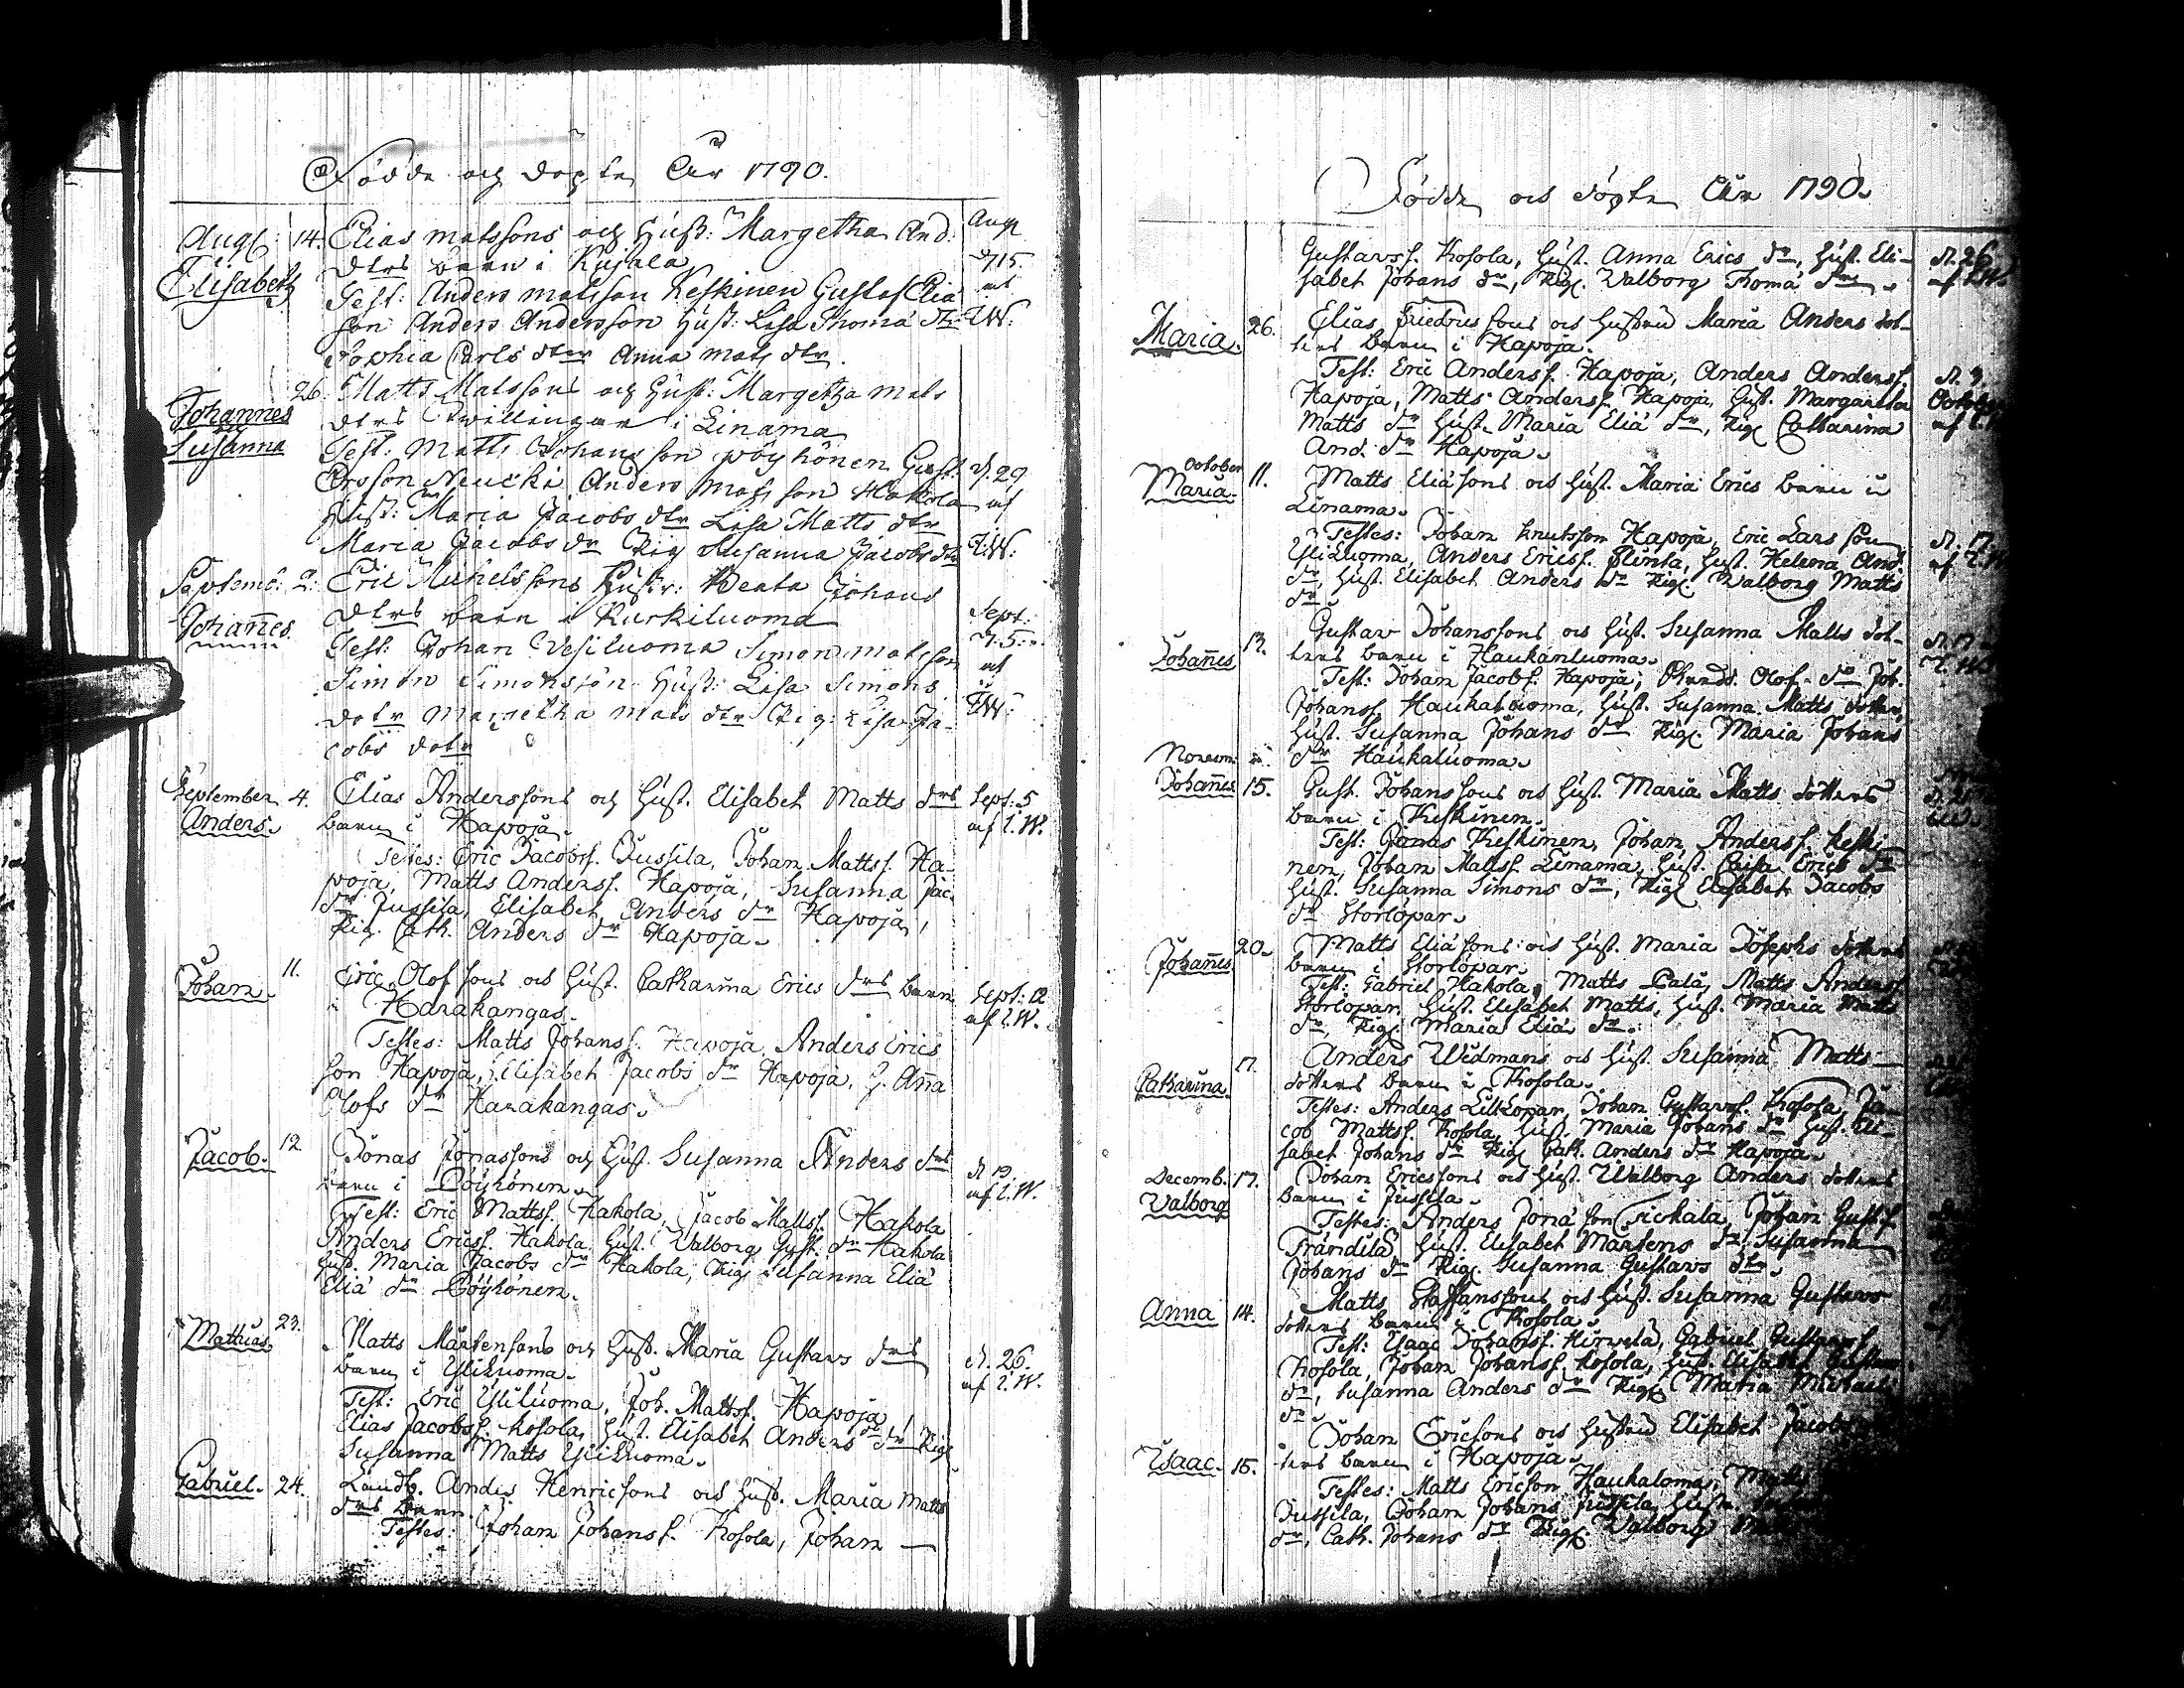 Födde och döpte År 1790.
Aug: 14. Elias Matssons och Hust: Margetha And: Aug
Elisabeth dtrs barn i Kujala d 15
Test: Anders Matsson Keskinen Gustaf Eliæ af
son Anders Andersson Hust: Lisa Thomæ dtr I.W.
Sophia Carls dtr Anna Mats dtr.
26. Matts Matssons och Hust: Margetha Mats
Johannes dtrs Twillingar i Linama
Susanna Test: Matts Johansson Pöyhönen Gust. d. 29
Ersson Neucki Anders Mats son Hakola af
Hust: Maria Jacobs dtr Lisa Matts dtr
Maria Jacobs dr Pig Susanna Jacobs dtr I.W:
Septemb: 2: Eric Michelssons Hustr: Beata Johans
Johannes dtrs barn i Kurkiluoma Sept:
Test: Johan Vesiluoma Simon Matsson d. 5.
Simon Simonsson Hust: Lisa Simons af
dotr Margetha Mats dtr Pig: Lisa Ja- I.W:
cobs dotr
September 4. Elias Anderssons och Hust. Elisabet Matts drs Sept: 5
Anders. barn i Hapoja. af I.W.
Testes: Eric Jacobss. Jussila, Johan Mattss. Ha-
poja, Matts Anderss. Hapoja, Susanna Jac.
dr Jussila, Elisabet Anders dr Hapoja,
Pig. Cath. Anders dr Hapoja.
Johan. 11. Eric Olofsons och Hust. Catharina Erics drs barn Sept: 12
i Harakangas. af I.W.
Testes: Matts Johanss. Hapoja Anders Erics
son Hapoja, Elisabet Jacobs dr Hapoja, H. Anna
Olofs dr Harakangas.
Jacob. 12 Jonas Jonassons och Hust. Susanna Anders drs d 19
barn i Pöyhönen. af I.W.
Test: Eric Mattss. Hakola, Jacob Mattss. Hakola
Anders Ericss. Hakola, Hust. Valborg Gust. dr Hakola
Hust. Maria Jacobs dr Hakola, Pig. Susanna Eliæ
Eliæ dr Pöyhönen.
Mathias 23. Matts Mårtensons och Hust. Maria Gustavs drs d. 26.
barn i Yliluoma. af I.W.
Test: Eric Yliluoma, Joh. Mattss. Hapoja,
Elias Jacobss. Kosola, Hust. Elisabet Anders dr Pig.
Susanna Matts Yliluoma.
Gabriel. 24. Landb. Anders Henricsons och Hust. Maria Matts
drs barn.
Testes: Johan Johanss. Kosola, Johan —
Födde och döpte År 1790.
Gustavss. Kosola, Hust. Anna Erics dr, Hust. Eli- d. 26
sabet Johans dr, Pig. Valborg Thomæ dr. af I.W.
Maria. 26. Elias sons och Hustru Maria Anders dot-
ters barn i Hapoja.
Test: Eric Anderss. Hapoja, Anders Anderss. d. 3
Hapoja, Matts Anderss. Hapoja, Hust. Margareta Octobr
Matts dr Hust. Maria Eliæ dr, Pig. Catharina af
And. dr Hapoja.
October
Maria. 11. Matts Eliæsons och Hust. Maria Erics barn i
Linama.
Testes: Johan Knutsson Hapoja, Eric Larsson d. 17
Yliluoma, Anders Ericss. Hinta, Hust. Helena And. af I.W
dr, Hust. Elisabet Anders dr Pig. Valborg Matts
dr.
Johannes 13. Gustav Johanssons och Hust. Susanna Matts dot- d. 17
ters barn i Haukanluoma. I.W.
Test: Johan Jacobs. Hapoja, Olof. Joh.
Johanss. Haukaluoma, Hust. Susanna Matts dotter,
Hust. Susanna Johans dr Pig. Maria Johans
Novemb. dr Haukaluoma.
Johannes 15. Gust. Johanssons och Hust. Maria Matts dotters
barn i Keskinen. d. 21
Test: Jonas Keskinen, Johan Anderss. Keski
nen, Johan Mattss. Linama, Hust. Caisa Erics dr
Hust. Susanna Simons dr, Pig. Elisabet Jacobs
dr Storlöpar.
Johannes 20. Matts Eliæsons och Hust. Maria Josephs dotters
barn i Storlöpar.
Test: Gabriel Hakola, Matts Pala, Matts Anderss.
Storlöpar, Hust. Elisabet Matts, Hust. Maria Matts
dr, Pig. Maria Eliæ dr.
Catharina 17. Anders Widmans och Hust. Susanna Matts
dotters barn i Kosola.
Testes: Anders Lillöpar, Johan Gustavss. Kosola, Ja-
cob Mattss. Kosola, Hust. Maria Johans dr Hust. Eli-
sabet Johans dr Pig. Cath. Anders dr Hapoja.
Decemb. 17. Johan Ericsons och Hust. Walborg Anders dotters
Valborg barn i Jussila.
Testes: Anders Jonæson Johan Gusts.
Hust. Elisabet Mårtens dr Susanna
Johans dr Pig. Susanna Gustavs dtr.
Anna 14. Matts Staffanssons och Hust. Susanna Gustavs
dotters barn i Kosola.
Test: Isaac Johanss. Hirvelä, Gabriel Gustavss.
Kosola, Johan Johanss. Kosola, Hust. Elisabet Gustavs
dr, Susanna Anders dr Pig. Maria Michaels
dr.
Isaac. 15. Johan Ericsons och Hustru Elisabet Jacobs
ters barn i Hapoja.
Testes: Matts Ericson Haukaloma,
Jussila, Johan Johans Jussila, Hust.
dr, Cath. Johans dr Pig. Valborg